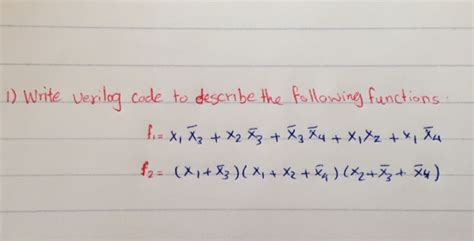 1) Write verilog code to describe the following functions:
f₁= x₁ x̄₃ + x₂ x̄₃ + x̄₃ x̄₄ + x₁x₂ + x₁ x̄₄
f₂= (x₁+x̄₃)(x₁+x₂+x̄₄)(x₂+x̄₃+x̄₄)